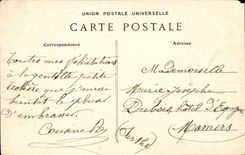 UNION POSTALE UNIVERSELLE
CARTE POSTALE
Correspondance
Adresse
Toutes mes félicitations
à la gentille petite
écolière que j'aurai
bientôt le plaisir
d'embrasser.
Cousine
Mademoiselle
Marie Josèphe
Dubois, hôtel d'Espagne
Mamers
(Sarthe)